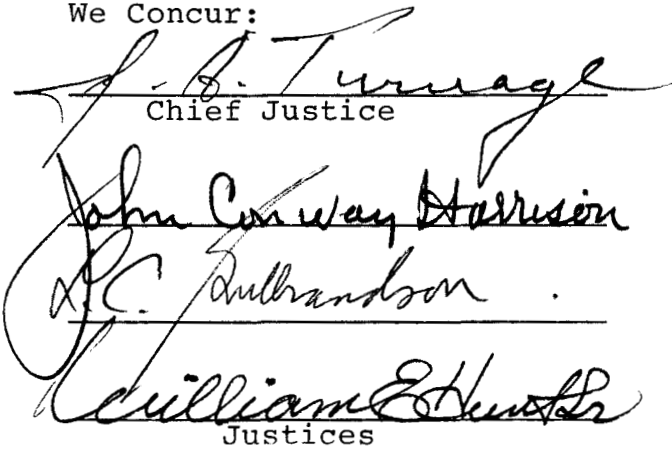 We Concur:
J. A. Turnage
Chief Justice
John Conway Harrison
L.C. Gulbrandson
William E Hunt Sr
Justices